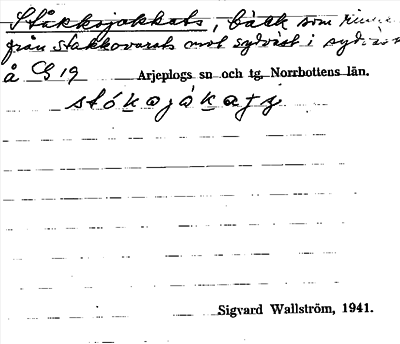 Ståkksjokkats, bäck som
från stakkovarats mot sydväst i
å C 19 Arjeplogs sn och tg. Norrbottens län.
stókajåkatj
Sigvard Wallström, 1941.